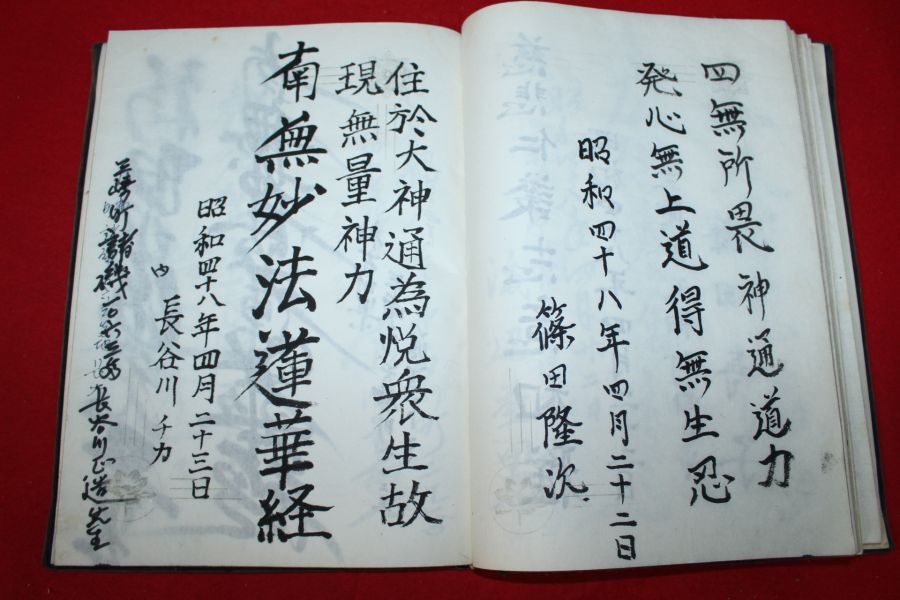 四無所畏 神通道力
発心無上道得無生忍
昭和四十八年四月二十二日
篠田隆次
住於大神通為悦衆生故
現無量神力
南無妙法蓮華経
昭和四十八年四月二十三日
内 長谷川チカ
三崎町諸磯 長谷川正造先生